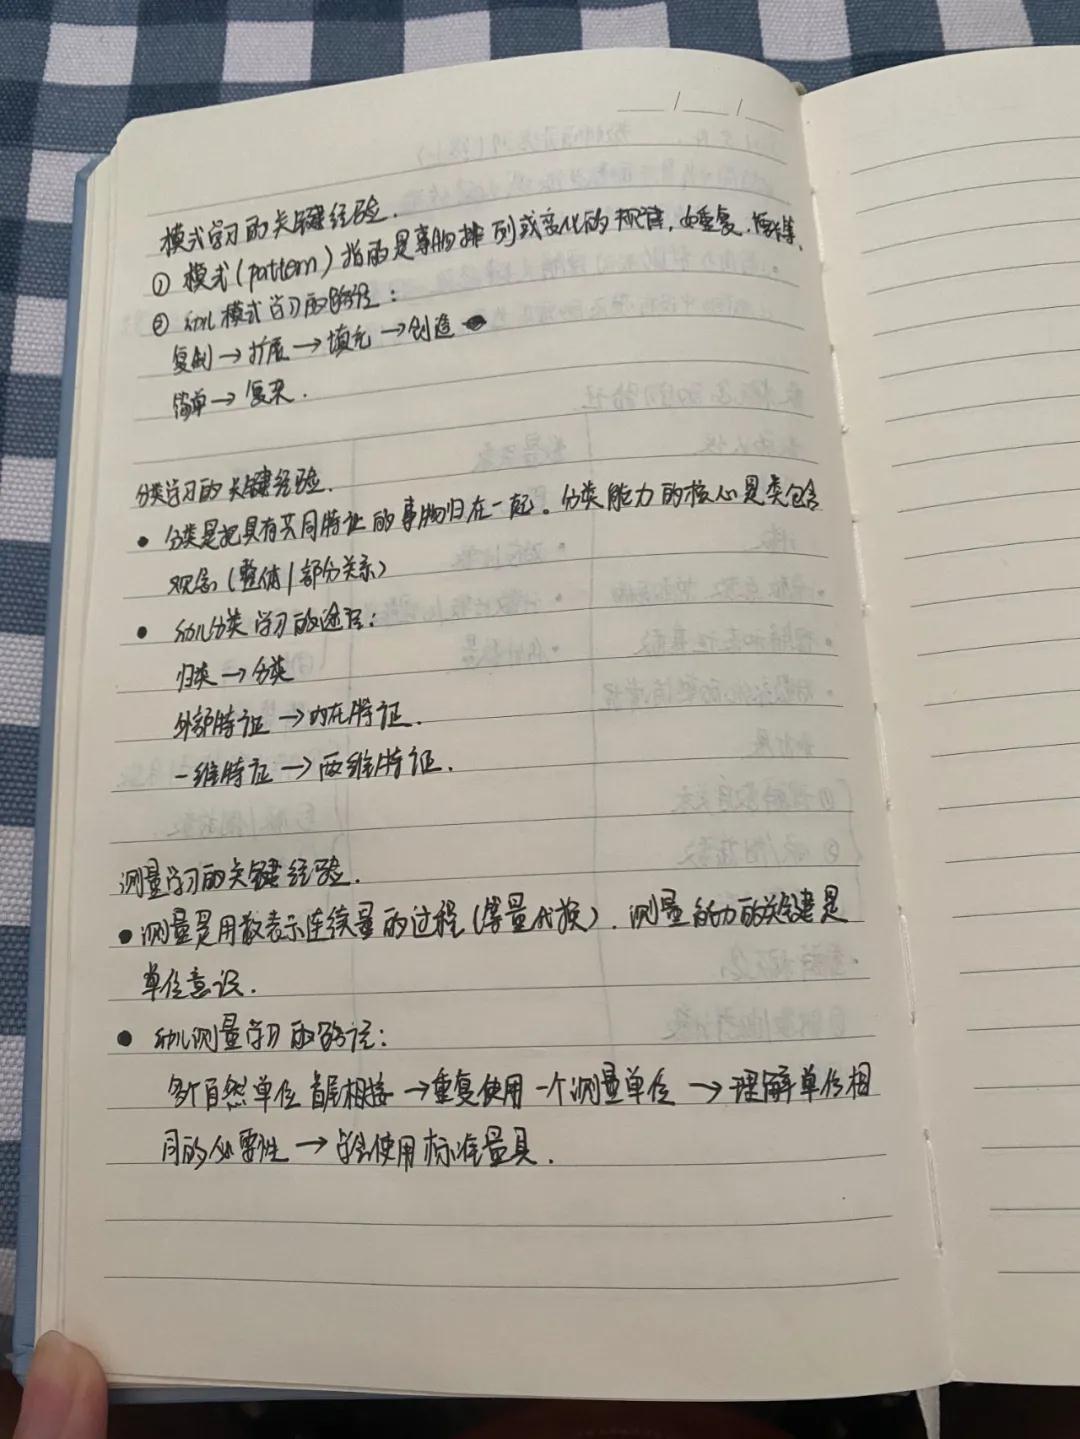 模式学习的关键经验.
① 模式(pattern)指的是事物排列或变化的规律,如重复、
② 幼儿模式学习的路径:
复制→扩展→填充→创造
简单→复杂.
分类学习的关键经验.
• 分类是把具有共同特征的事物归在一起。分类能力的核心是类包含
观念(整体/部分关系)
• 幼儿分类学习的途径:
归类→分类
外部特征→内在特征.
一维特征→两维特征.
测量学习的关键经验.
• 测量是用数表示连续量的过程(等量代换).测量能力的关键是
单位意识.
• 幼儿测量学习的路径:
多个自然单位首尾相接→重复使用一个测量单位→理解单位相
同的必要性→学会使用标准量具.